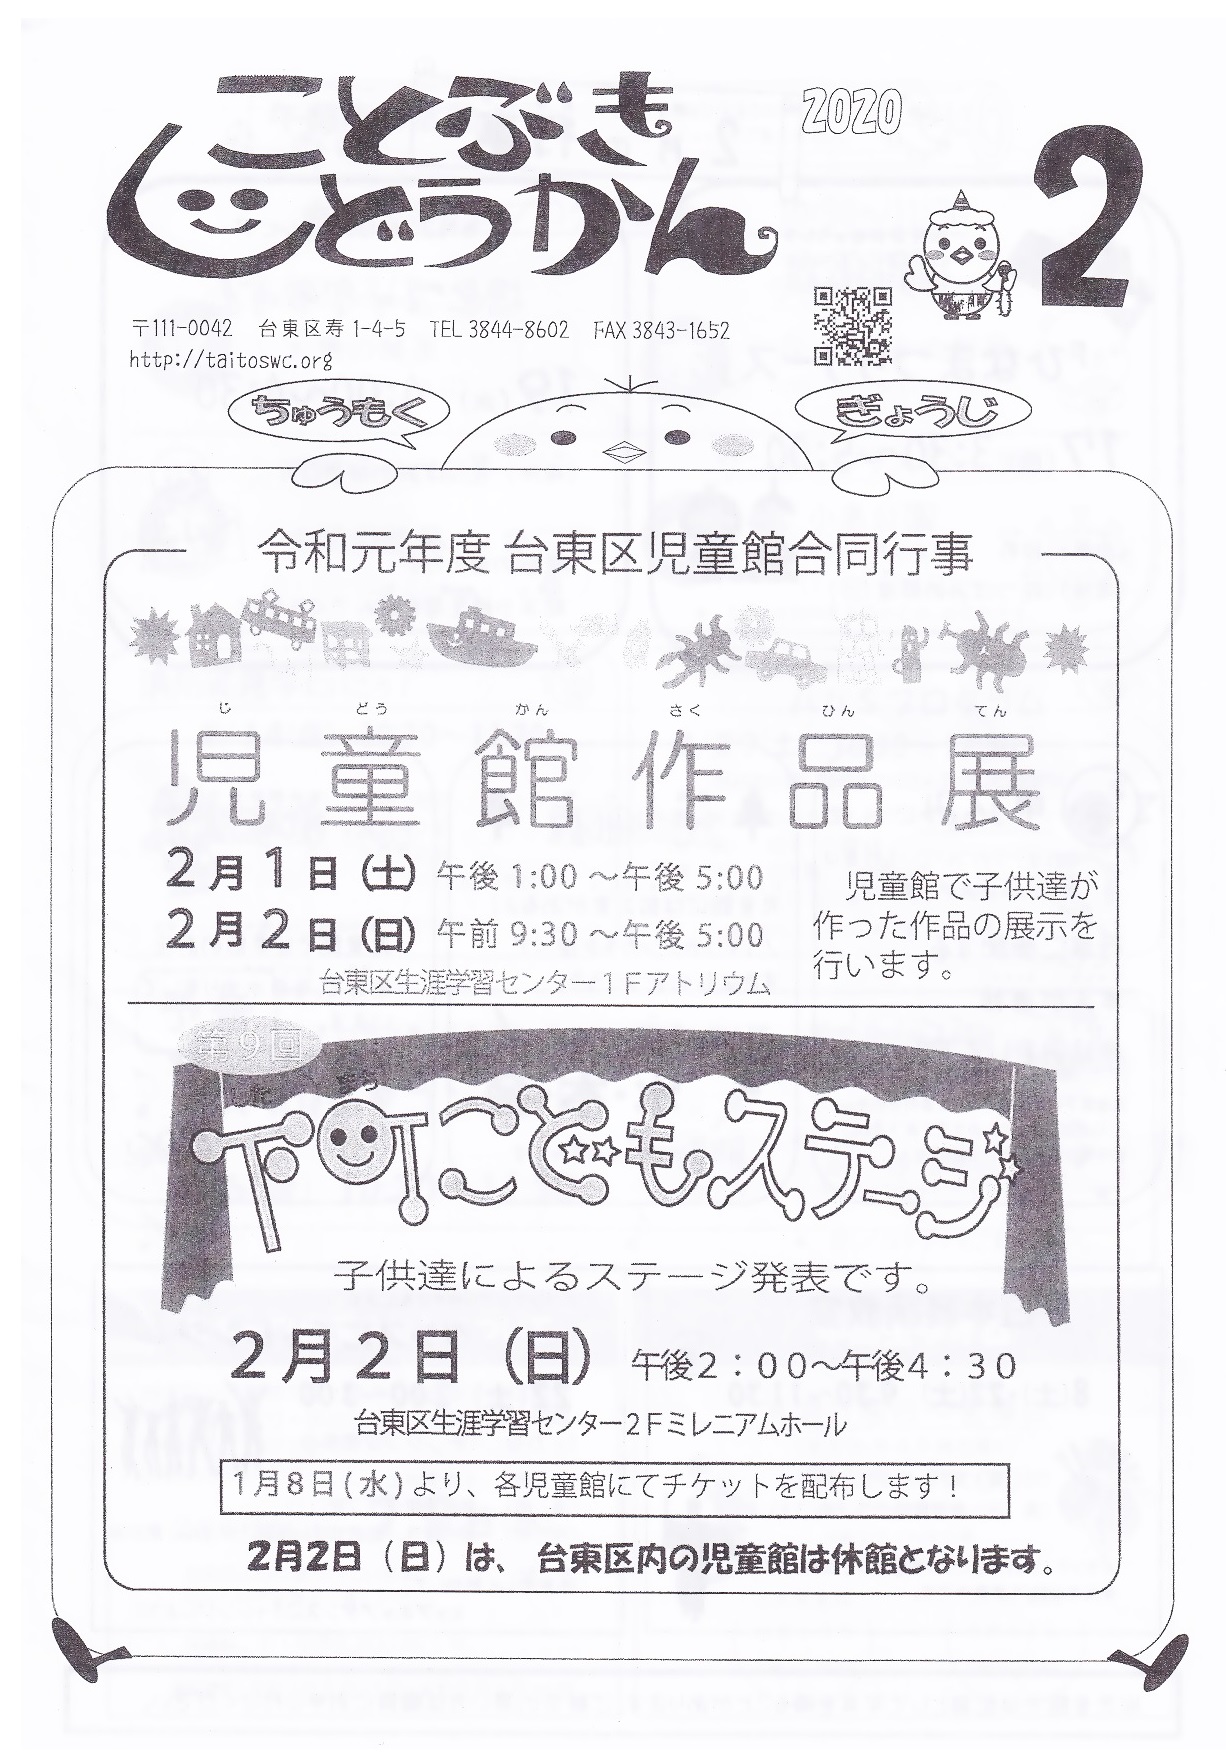 ことぶき
じどうかん
2020
2
〒111-0042 台東区寿 1-4-5 TEL 3844-8602 FAX 3843-1652
http://taitoswc.org
ちゅうもく
ぎょうじ
令和元年度 台東区児童館合同行事
じ どう かん さく ひん てん
児童館作品展
2月1日(土) 午後 1:00 ～午後 5:00
2月2日(日) 午前 9:30 ～午後 5:00
台東区生涯学習センター１Ｆアトリウム
児童館で子供達が
作った作品の展示を
行います。
第９回
した まち
下町こどもステージ
子供達によるステージ発表です。
２月２日（日） 午後２：００～午後４：３０
台東区生涯学習センター２Ｆミレニアムホール
1月8日(水)より、各児童館にてチケットを配布します！
2月2日（日）は、台東区内の児童館は休館となります。